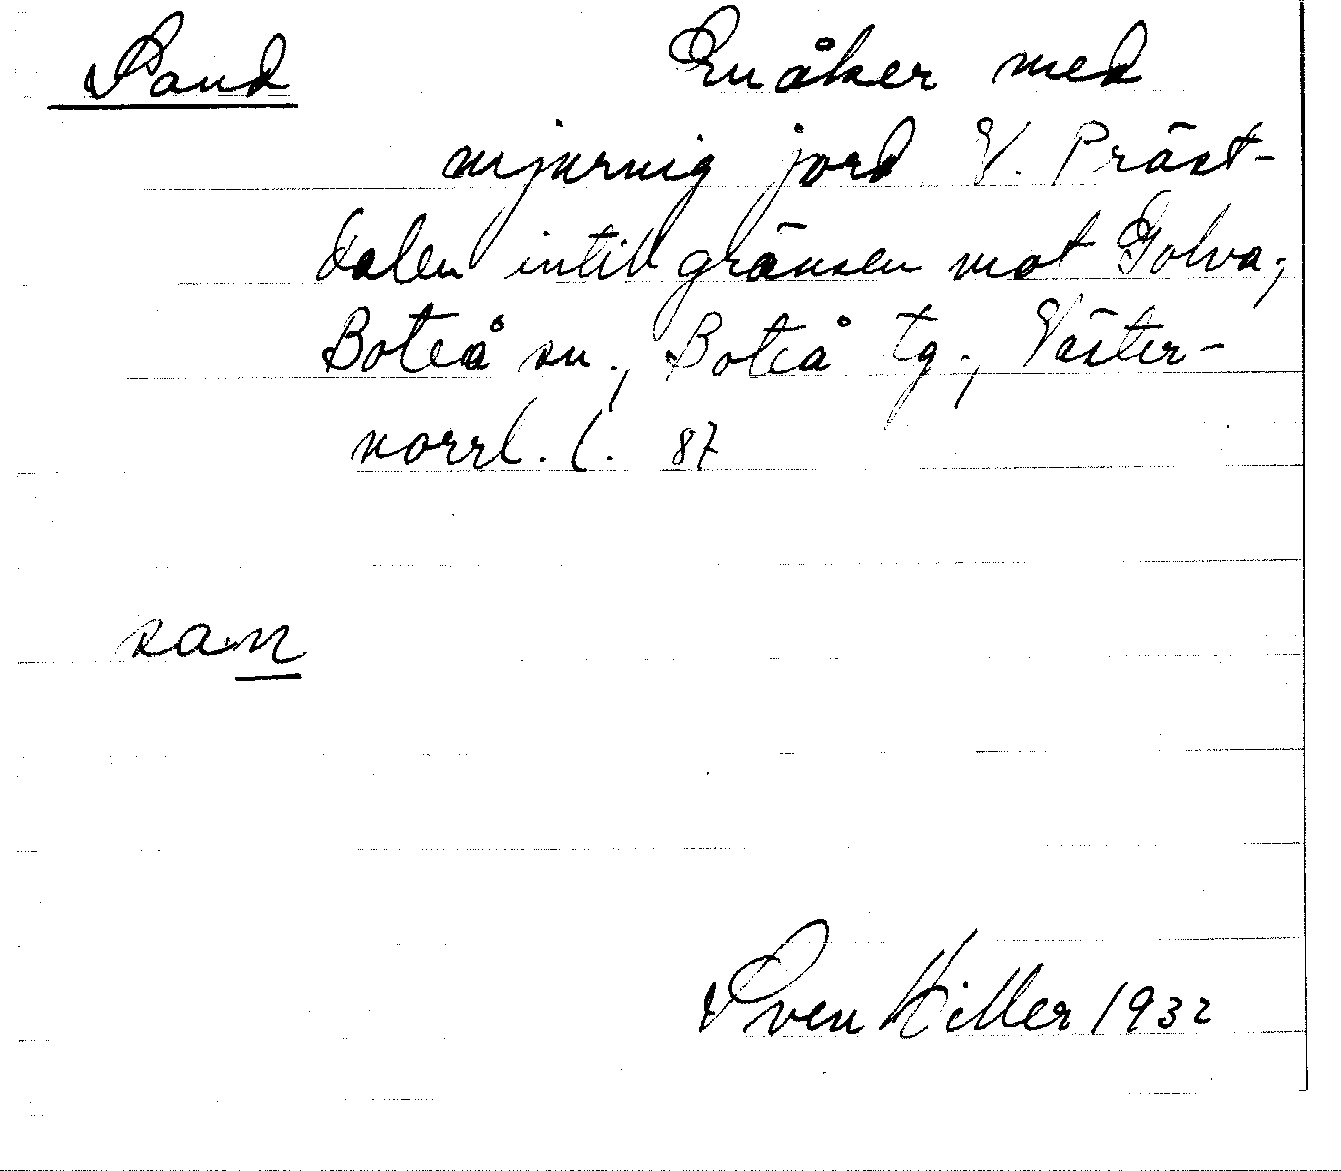 Sand En åker med
mjurnig jord V. Präst-
dalen intill gränsen mot Golva;
Boteå sn., Boteå tg., Väster-
norrl. l. 87
san
Sven Hiller 1932